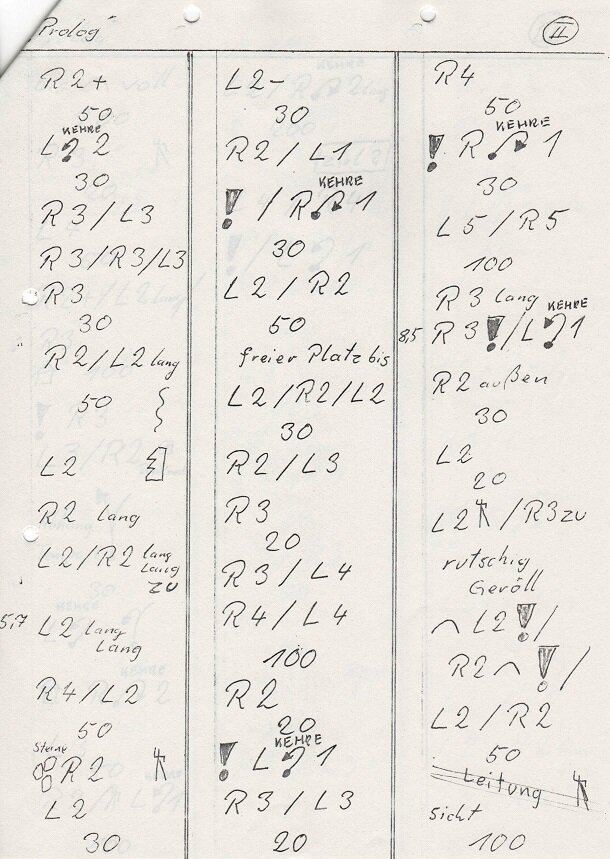 "Prolog"
II
R2+
50
KEHRE
L 2
30
R3/L3
R3/R3/L3
R3
30
R2/L2 lang
50
L2
R2 lang
L2/R2 lang
lang
zu
5,7 L2 lang
lang
R4/L2
50
Steine
R2
L2
30
L2-
30
R2/L1
KEHRE
! / R 1
30
L2/R2
50
freier Platz bis
L2/R2/L2
30
R2/L3
R3
20
R3/L4
R4/L4
100
R2
20
KEHRE
! L 1
R3/L3
20
R4
50
KEHRE
! R 1
30
L5/R5
100
R3 lang
KEHRE
8,5 R3 !/L 1
R2 außen
30
L2
20
L2 /R3 zu
rutschig
Geröll
⌒ L2 !/
R2 ⌒ !/
L2/R2
50
Leitung
Sicht
100